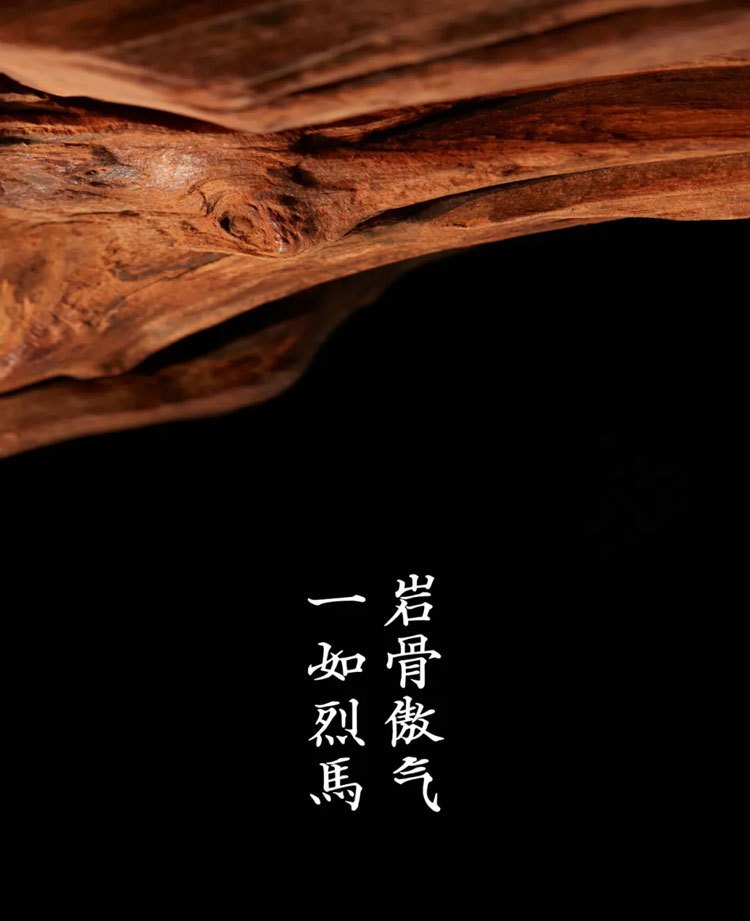 岩骨傲气
一如烈馬